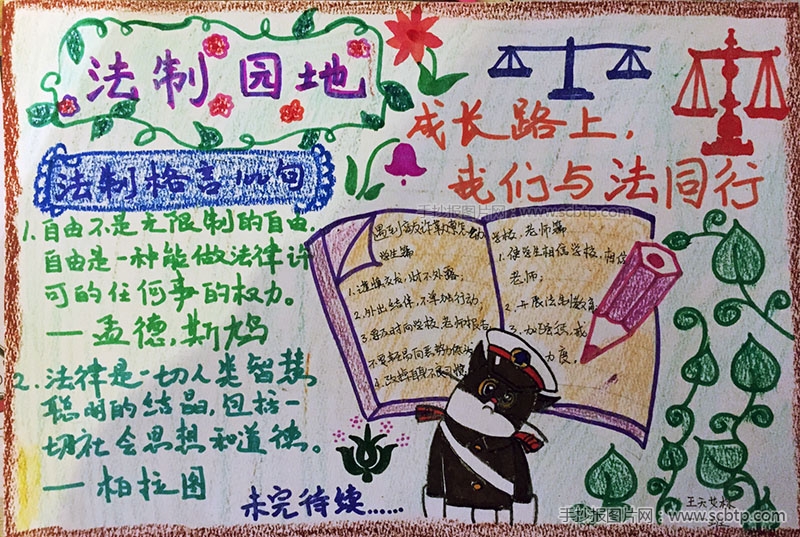 法制园地
成长路上，
我们与法同行
法制格言100句
1.自由不是无限制的自由，
自由是一种能做法律许
可的任何事的权力。
—孟德,斯鸠
2.法律是一切人类智慧
聪明的结晶,包括一
切社会思想和道德。
—柏拉图
未完待续……
学生篇
1.谨慎交友，财不外露；
2.外出结伴，不单独行动
3.要及时向学校、老师报告
学校、老师篇
1.使学生相信学校，相信
老师；
2.开展法制教育
3.加强惩戒
力度。
手抄报图片网 www.scbtp.com
手抄报图片网：www.scbtp.com